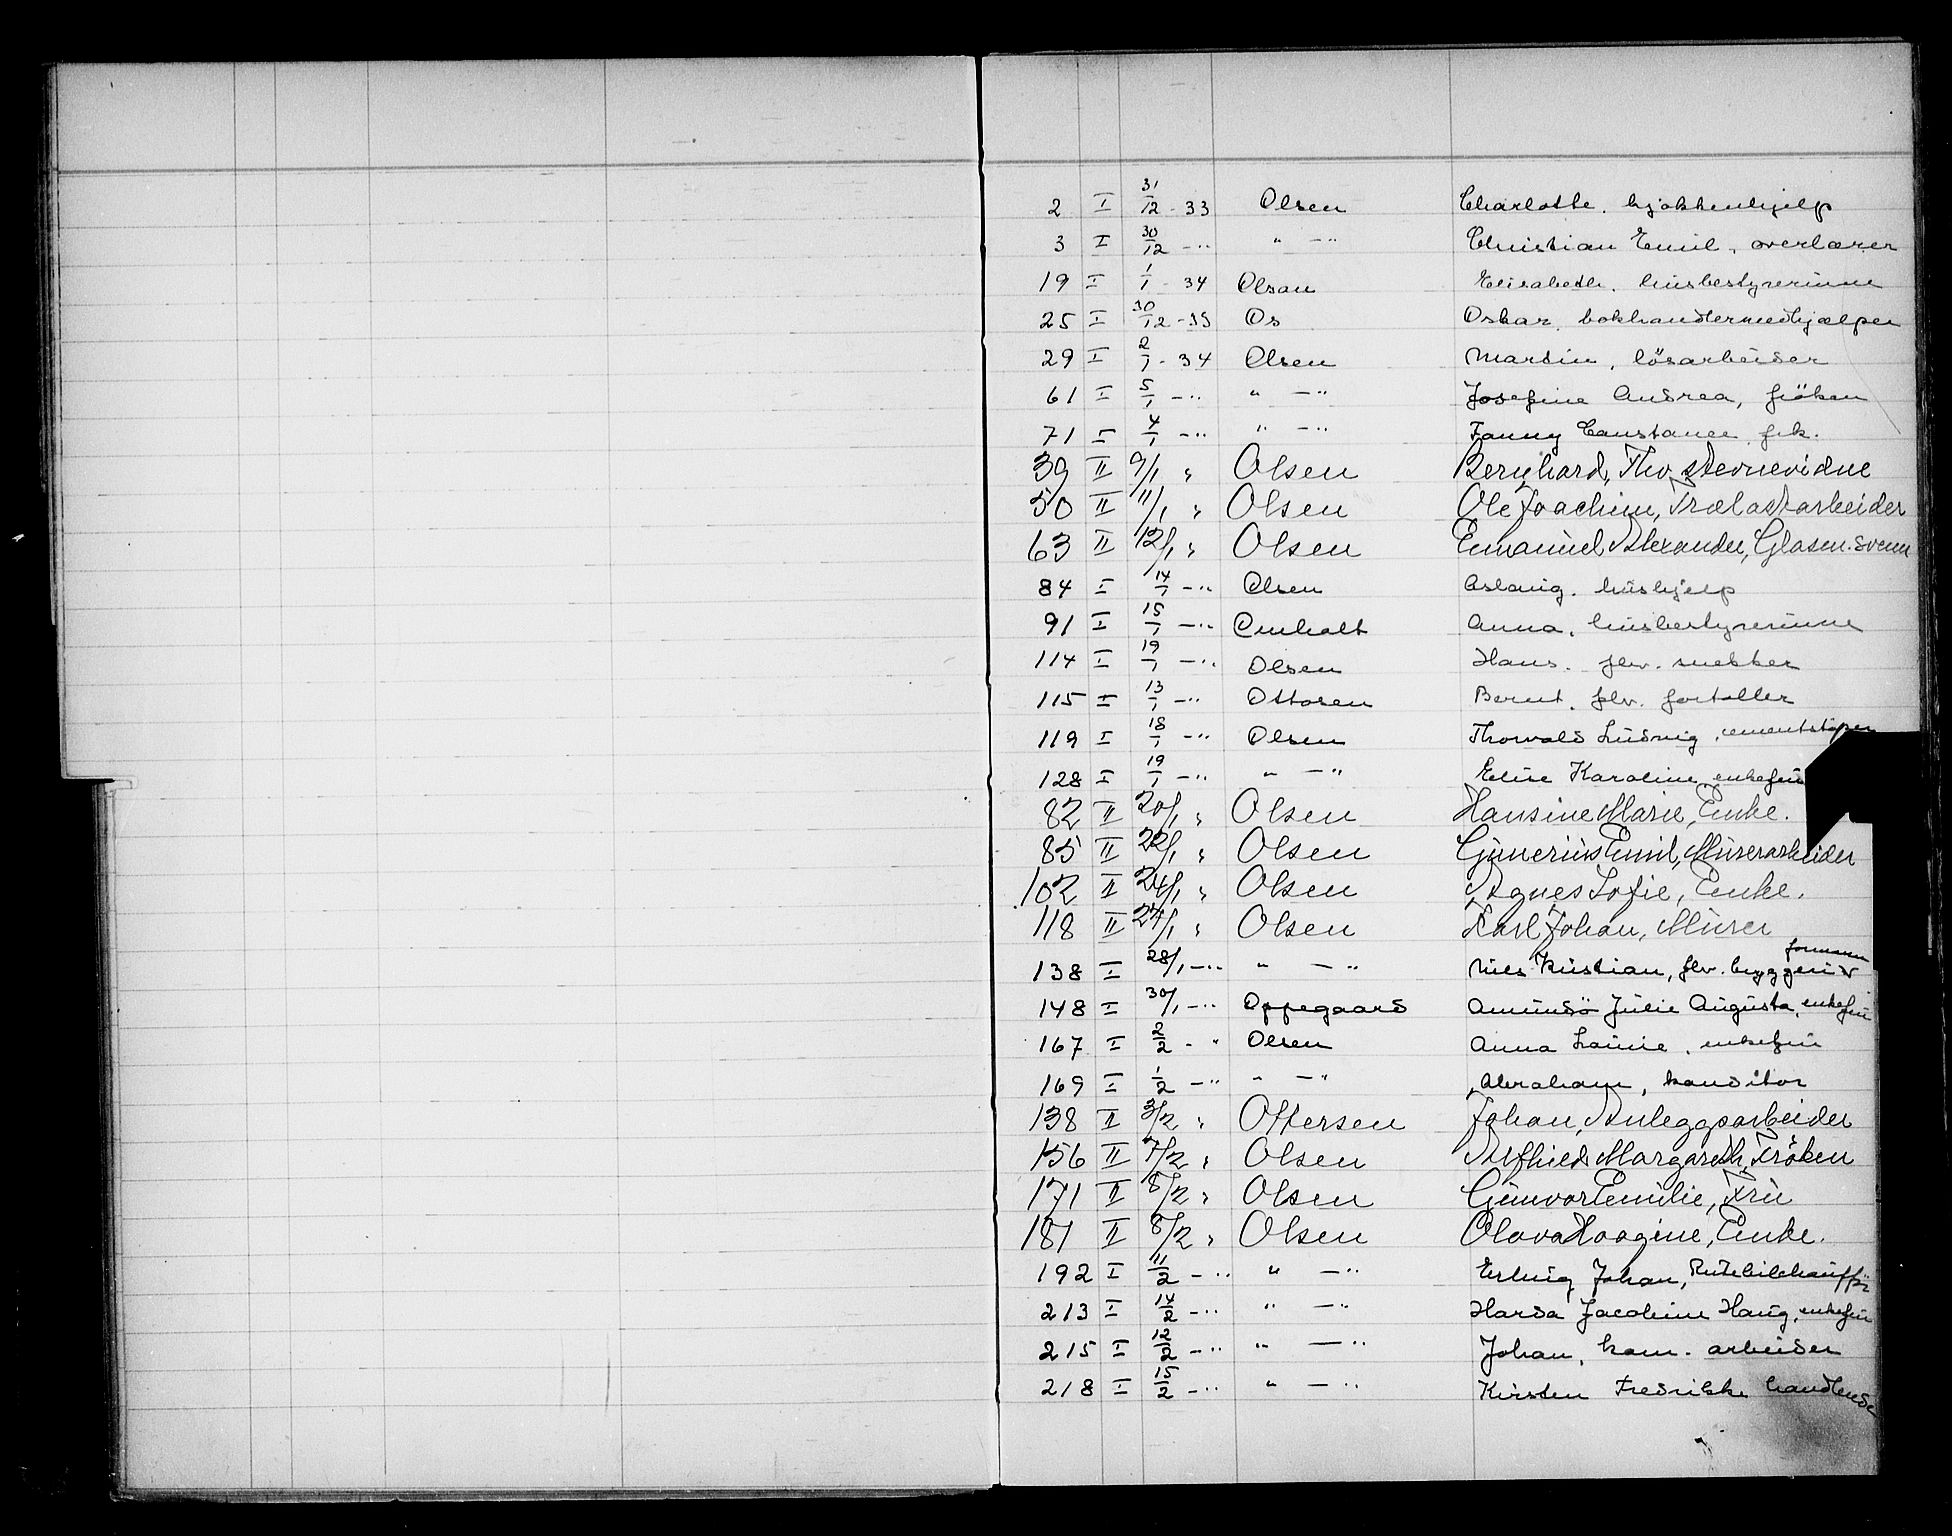 2 I 31/12 - 33 Olsen Charlotte. kjøkkenhjelp
3 I 30/12 - " " - " Christian Emil, overlærer
19 I 1/1 - 34 Olsen Elisabeth. husbestyrerinne
25 I 30/12 - 33 Os Oskar, bokhandlermedhjælper
29 I 2/1 - 34 Olsen Martin, lösarbeider
61 I 5/1 - " " - " Josefine Andrea, fröken
71 I 4/1 - " " - " Fanny Constance, frk.
39 II 9/1 " Olsen Bernhard, Thv. stevnevidne
50 II 11/1 " Olsen Ole Joachim, Trælastarbeider
63 II 12/1 " Olsen Emanuel Alexander, Glasm. svenn
84 I 14/1 - " Olsen Aslaug. hushjelp
91 I 15/1 - " Omholt Anna, husbestyrerinne
114 I 19/1 - " Olsen Hans. flv. snekker
115 I 13/1 - " Ottosen Bernt, flv. fortoller
119 I 18/1 - " Olsen Thorvald Ludvig, cementstöper
128 I 19/1 - " " - " Elise Karoline, enkefru
82 II 20/1 " Olsen Hansine Marie, Enke.
85 II 22/1 " Olsen Gunerius Emil, Murerarbeider
102 II 24/1 " Olsen Agnes Sofie, Enke.
118 II 27/1 " Olsen Karl Johan, Murer
138 I 28/1 - " " - " Nils Kristian, flv. bryggeri formann
148 I 30/1 - " Oppegaard Amundö Julie Augusta, enkefru
167 I 2/2 - " Olsen Anna Lovise, enkefru
169 I 1/2 - " " - " Abraham, konditor
138 II 3/2 " Ottersen Johan, Anleggsarbeider
156 II 7/2 " Olsen Alfhild Margareth, Fröken
171 II 8/2 " Olsen Gunvor Emilie, Fru
181 II 8/2 " Olsen Olava Hoagine, Enke.
192 I 11/2 - " " - " Erling Johan, Rutebilchauffør
213 I 14/2 - " " - " Harda Jacobine Haug, enkefru
215 I 12/2 - " " - " Johan, kom. arbeider
218 I 15/2 - " " - " Kirsten Fredrikke handlende